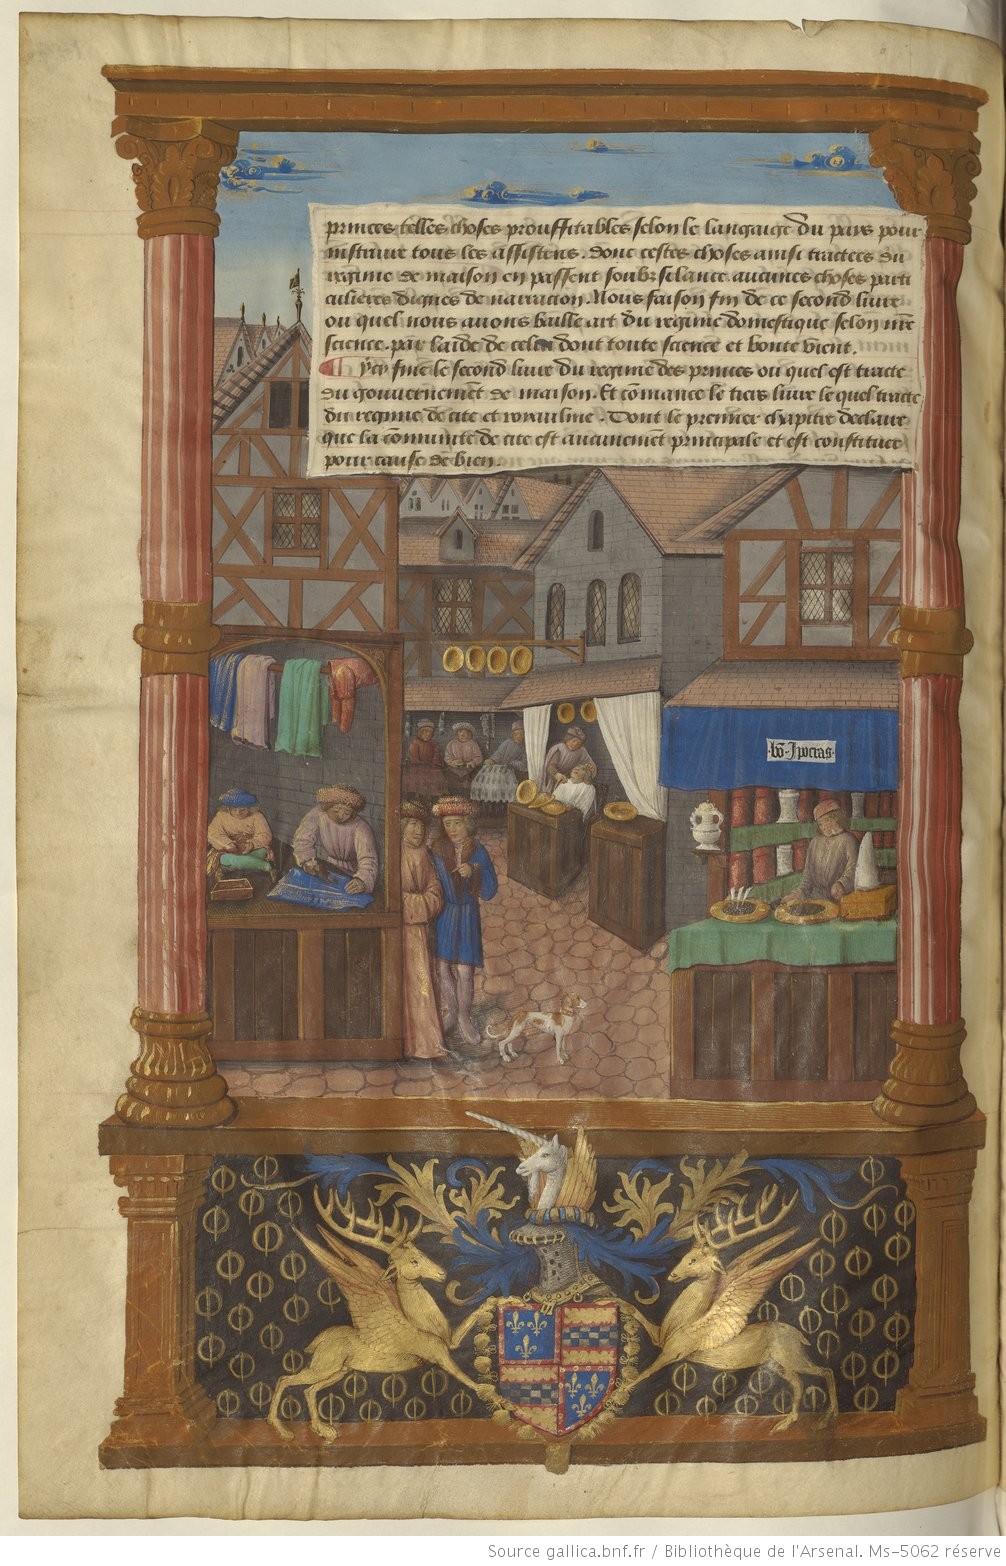 princes telles choses prouffitables selon le langaige du pays pour
instruire tous les assistens. Donc cestes choses ainsi tractees du
regime de maison en passent soubz silance aucunes choses parti
culieres dignes de narracion. Nous faison fin de ce second livre
ou quel nous avons baille art du regime domestique selon nr̄e
science. par laide de celui dont toute science et bonte vient.
Cy fine le second livre du regime des princes ou quel est tracte
du gouvernemēt de maison. Et cōmance le tiers livre le quel tracte
du regime de cite et royaulme. Dont le premier chapitre declaire
que la cōmunite de cite est aucunemēt principale et est constituee
pour cause de bien.
bō Ipocras
Source gallica.bnf.fr / Bibliothèque de l'Arsenal. Ms-5062 réserve